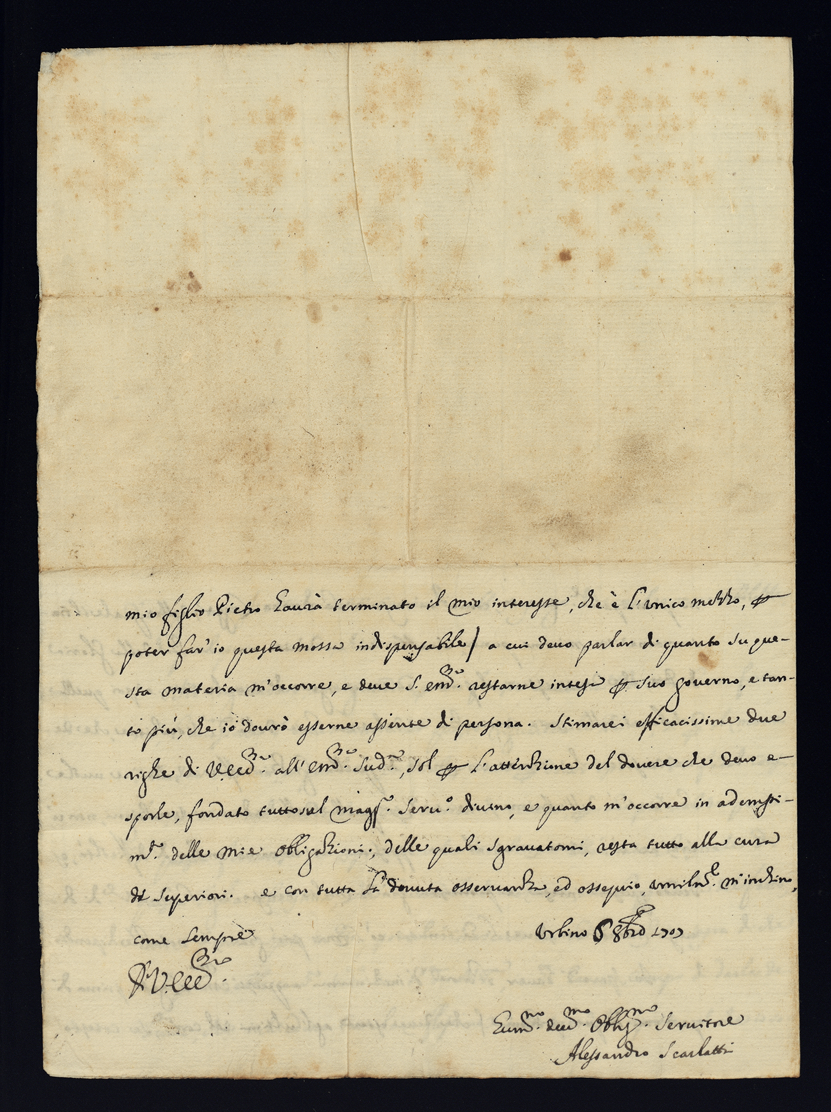 mio figlio Pietro haurà terminato il mio interesse, che è l'unico mezzo, p
poter far' io questa mossa indispensabile) a cui devo parlar di quanto su que-
sta materia m'occorre, e deve S. Em.ᵃ restarne intesa p suo governo, e tan-
to più, che io dourò esserne assente di persona. Stimarei efficacissime due
righe di V. Ecc.ᵃ all' Em.ᵃ Sud.ᵃ, sol p l'attenzione del dovere che devo e-
sporle, fondato tutto sul magg.ʳ seru.º diuino, e quanto m'occorre in adempi-
m.ᵗº delle mie obligazioni, delle quali sgravatomi, resta tutto alla cura
de Superiori. e con tutta la dovuta osservanza, ed ossequio, umilm.ᵗᵉ m'inchino,
come sempre
Urbino 6 8bre 1707
D. V. Ecc.ᵃ
Hum.ᵐº deu.ᵐº Oblig.ᵐº Seruitore
Alessandro Scarlatti